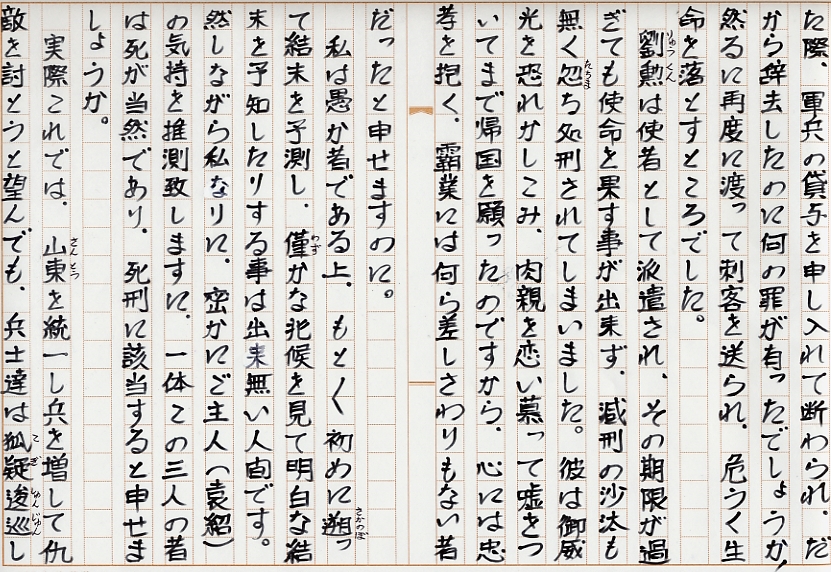 た際、軍兵の貸与を申し入れて断わられ、だ
から辞去したのに何の罪が有ったでしょうか！
然るに再度に渡って刺客を送られ、危うく生
命を落とすところでした。
劉勲は使者として派遣され、その期限が過
ぎても使命を果す事が出来ず、減刑の沙汰も
無く忽ち処刑されてしまいました。彼は御威
光を恐れかしこみ、肉親を恋い慕って嘘をつ
いてまで帰国を願ったのですから、心には忠
孝を抱く、覇業には何ら差しさわりもない者
だったと申せますのに。
私は愚か者である上、もとく初めに遡っ
て結末を予測し、僅かな兆候を見て明白な結
末を予知したりする事は出来無い人間です。
然しながら私なりに、密かにご主人（袁紹）
の気持を推測致しますに、一体この三人の者
は死が当然であり、死刑に該当すると申せま
しょうか。
実際これでは、山東を統一し兵を増して仇
敵を討とうと望んでも、兵士達は狐疑逡巡し